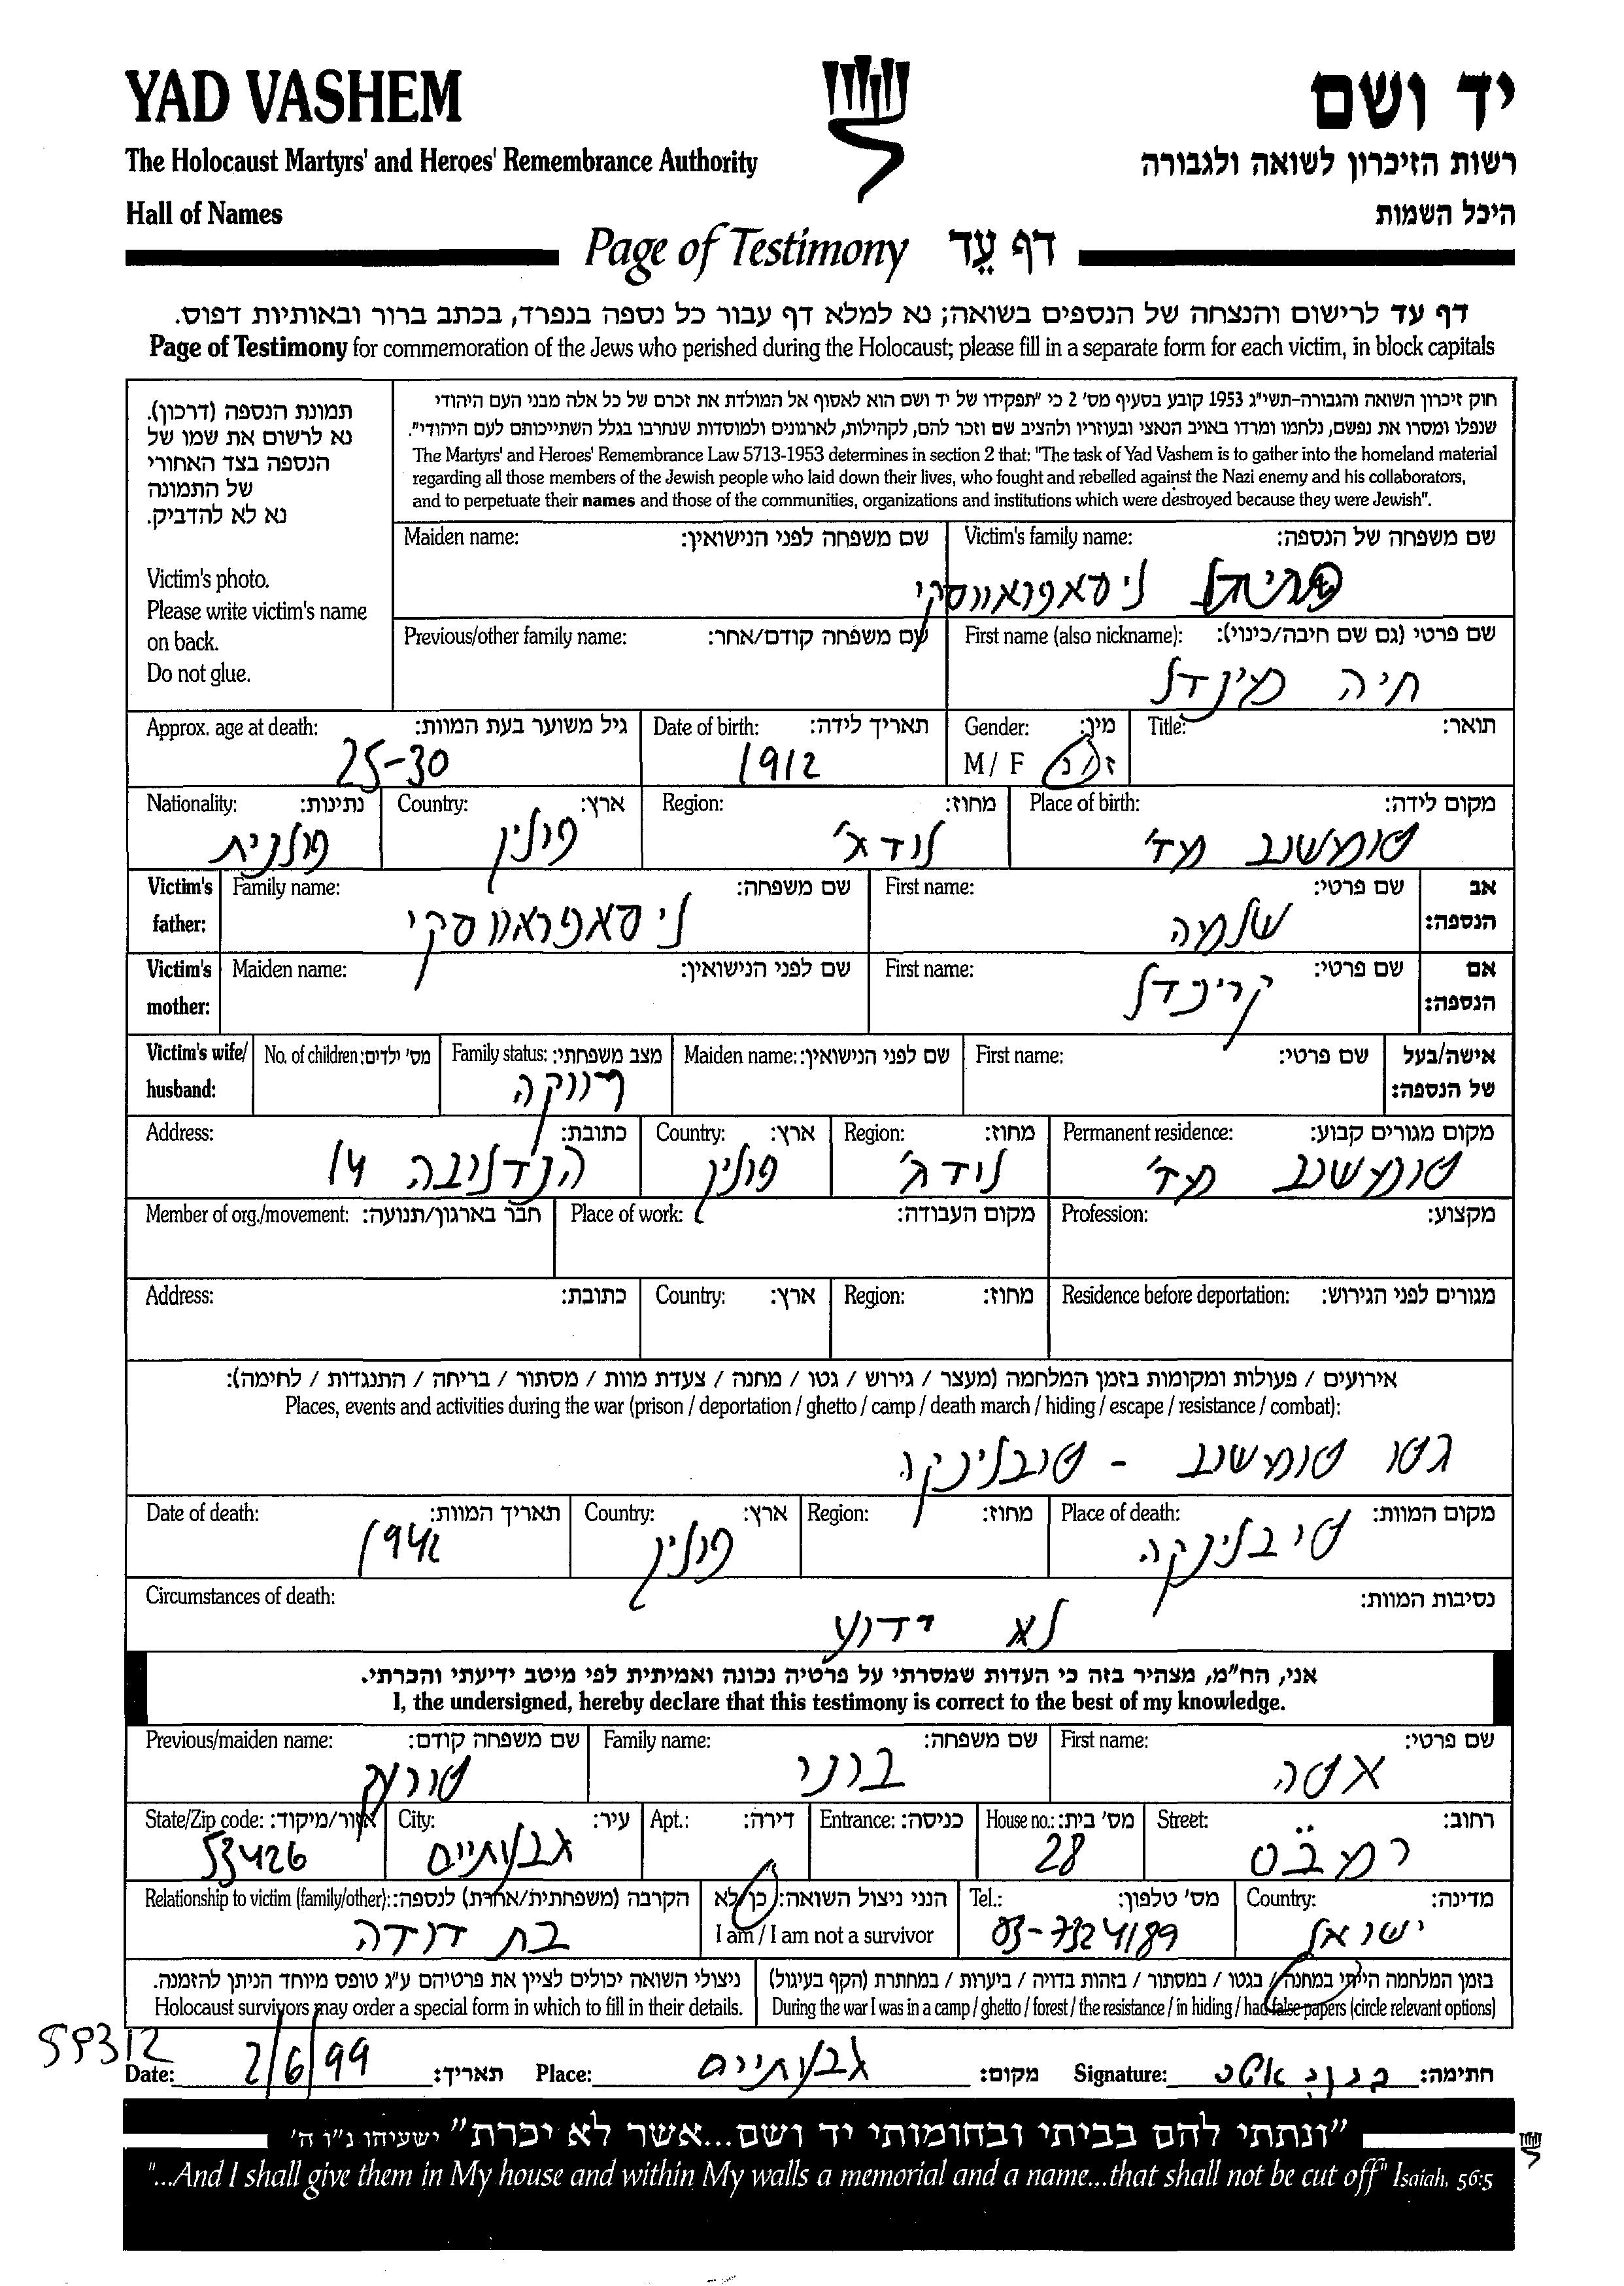 YAD VASHEM
יד ושם
The Holocaust Martyrs' and Heroes' Remembrance Authority
רשות הזיכרון לשואה ולגבורה
Hall of Names
היכל השמות
Page of Testimony דף עֵד
דף עד לרישום והנצחה של הנספים בשואה; נא למלא דף עבור כל נספה בנפרד, בכתב ברור ובאותיות דפוס.
Page of Testimony for commemoration of the Jews who perished during the Holocaust; please fill in a separate form for each victim, in block capitals
תמונת הנספה (דרכון).
נא לרשום את שמו של
הנספה בצד האחורי
של התמונה
נא לא להדביק.
Victim's photo.
Please write victim's name
on back.
Do not glue.
חוק זיכרון השואה והגבורה-תשי"ג 1953 קובע בסעיף מס' 2 כי "תפקידו של יד ושם הוא לאסוף אל המולדת את זכרם של כל אלה מבני העם היהודי
שנפלו ומסרו את נפשם, נלחמו ומרדו באויב הנאצי ובעוזריו ולהציב שם וזכר להם, לקהילות, לארגונים ולמוסדות שנחרבו בגלל השתייכותם לעם היהודי".
The Martyrs' and Heroes' Remembrance Law 5713-1953 determines in section 2 that: "The task of Yad Vashem is to gather into the homeland material
regarding all those members of the Jewish people who laid down their lives, who fought and rebelled against the Nazi enemy and his collaborators,
and to perpetuate their names and those of the communities, organizations and institutions which were destroyed because they were Jewish".
Victim's family name: שם משפחה של הנספה:
Maiden name: שם משפחה לפני הנישואין:
ניסאפראווסקי
First name (also nickname): שם פרטי (גם שם חיבה/כינוי):
Previous/other family name: שם משפחה קודם/אחר:
חיה מינדל
Title: תואר:
Gender: מין:
Date of birth: תאריך לידה:
Approx. age at death: גיל משוער בעת המוות:
M / F ז/נ
1912
25-30
Place of birth: מקום לידה:
Region: מחוז:
Country: ארץ:
Nationality: נתינות:
טומשוב מז'
לודג'
פולין
פולנית
Victim's father: אב הנספה:
First name: שם פרטי:
Family name: שם משפחה:
שלמה
ניסאפראווסקי
Victim's mother: אם הנספה:
First name: שם פרטי:
Maiden name: שם לפני הנישואין:
קריינדל
Victim's wife/husband: אישה/בעל של הנספה:
First name: שם פרטי:
Maiden name: שם לפני הנישואין:
Family status: מצב משפחתי:
No. of children: מס' ילדים:
רווקה
Permanent residence: מקום מגורים קבוע:
Region: מחוז:
Country: ארץ:
Address: כתובת:
טומשוב מז'
לודג'
פולין
הנדלובה 14
Profession: מקצוע:
Place of work: מקום העבודה:
Member of org./movement: חבר בארגון/תנועה:
Residence before deportation: מגורים לפני הגירוש:
Region: מחוז:
Country: ארץ:
Address: כתובת:
אירועים / פעולות ומקומות בזמן המלחמה (מעצר / גירוש / גטו / מחנה / צעדת מוות / מסתור / בריחה / התנגדות / לחימה):
Places, events and activities during the war (prison / deportation / ghetto / camp / death march / hiding / escape / resistance / combat):
גטו טומשוב - טובלינקה
Place of death: מקום המוות:
Region: מחוז:
Country: ארץ:
Date of death: תאריך המוות:
טיבלינקה
פולין
1942
Circumstances of death: נסיבות המוות:
לא ידוע
אני, הח"מ, מצהיר בזה כי העדות שמסרתי על פרטיה נכונה ואמיתית לפי מיטב ידיעתי והכרתי.
I, the undersigned, hereby declare that this testimony is correct to the best of my knowledge.
First name: שם פרטי:
Family name: שם משפחה:
Previous/maiden name: שם משפחה קודם:
אטה
ברוני
Street: רחוב:
House no.: מס' בית:
Entrance: כניסה:
Apt.: דירה:
City: עיר:
State/Zip code: אזור/מיקוד:
רמב"ם
28
גבעתיים
53426
Country: מדינה:
Tel.: מס' טלפון:
הנני ניצול השואה: כן/לא
I am / I am not a survivor
Relationship to victim (family/other): הקרבה (משפחתית/אחרת) לנספה:
ישראל
03-7324189
בת דודה
בזמן המלחמה הייתי במחנה / בגטו / במסתור / בזהות בדויה / ביערות / במחתרת (הקף בעיגול)
During the war I was in a camp / ghetto / forest / the resistance / in hiding / had false papers (circle relevant options)
ניצולי השואה יכולים לציין את פרטיהם ע"ג טופס מיוחד הניתן להזמנה.
Holocaust survivors may order a special form in which to fill in their details.
59312
Date: 2/6/99 תאריך: Place: גבעתיים מקום: Signature: ברוני אטה חתימה:
"ונתתי להם בביתי ובחומותי יד ושם...אשר לא יכרת" ישעיהו נ"ו ה'
"...And I shall give them in My house and within My walls a memorial and a name...that shall not be cut off" Isaiah, 56:5